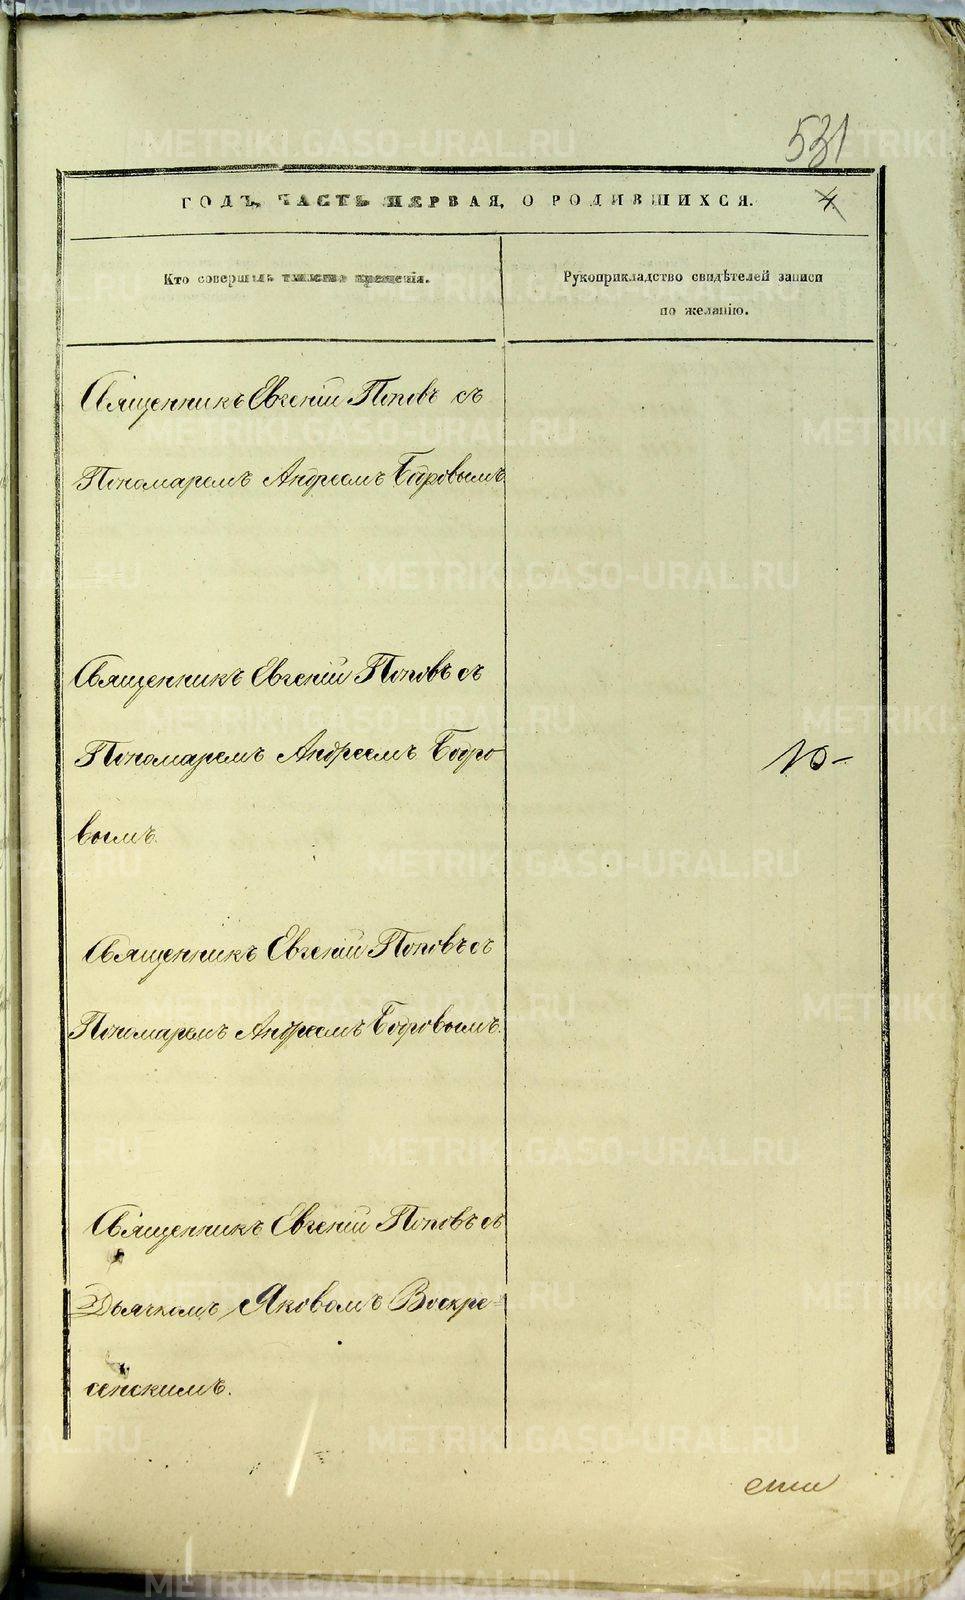 531
ГОДЪ, ЧАСТЬ ПЕРВАЯ, О РОДИВШИХСЯ. 4
Кто совершалъ таинство крещенія.
Рукоприкладство свидѣтелей записи
по желанію.
Священникъ Евгеній Поповъ съ
Пономаремъ Андреемъ Бодровымъ
Священникъ Евгеній Поповъ съ
Пономаремъ Андреемъ Бодро
вымъ.
Священникъ Евгеній Поповъ съ
Пономаремъ Андреемъ Бодровымъ.
Священникъ Евгеній Поповъ съ
Дьячкомъ Яковомъ Воскре-
сенскимъ.
METRIKI.GASO-URAL.RU